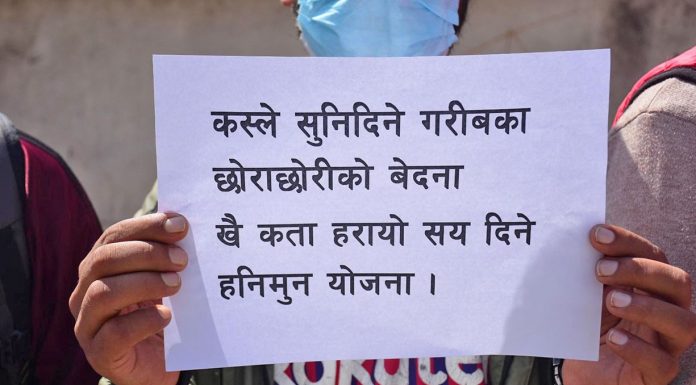 कस्ले सुनिदिने गरीबका
छोराछोरीको बेदना
खै कता हरायो सय दिने
हनिमुन योजना ।